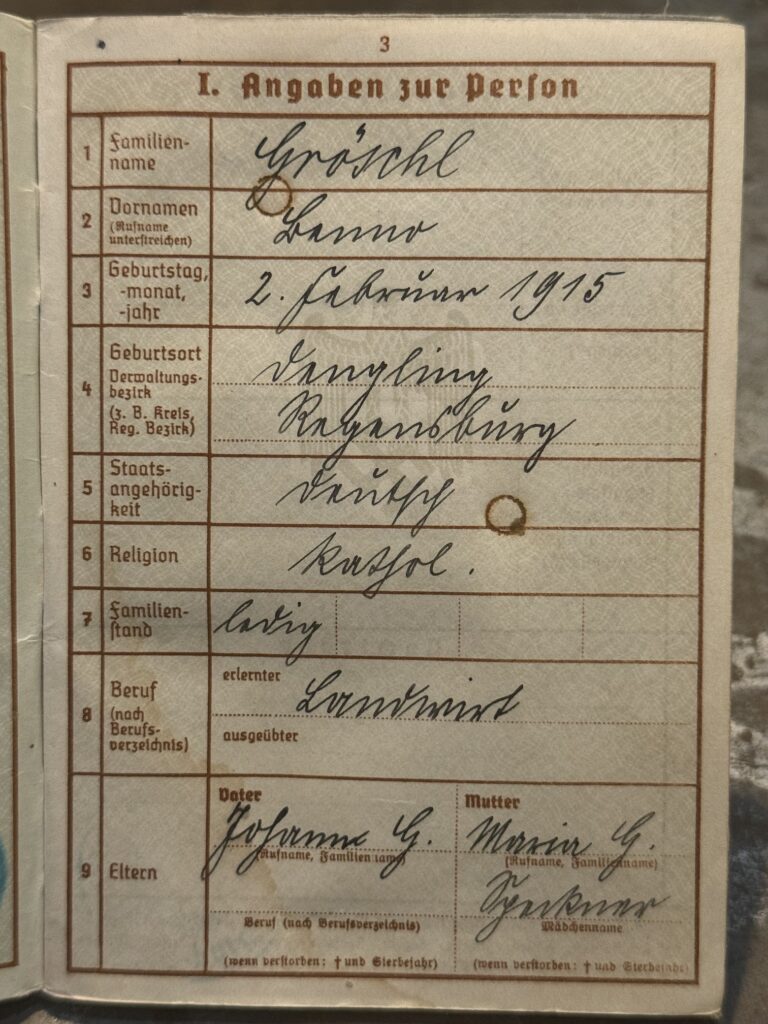 3
I. Angaben zur Person
1 Familien-
name
Gröschl
2 Vornamen
(Rufname
unterstreichen)
Benno
3 Geburtstag,
-monat,
-jahr
2. Februar 1915
4 Geburtsort
Verwaltungs-
bezirk
(z. B. Kreis,
Reg. Bezirk)
Dengling
Regensburg
5 Staats-
angehörig-
keit
deutsch
6 Religion
kathol.
7 Familien-
stand
ledig
8 Beruf
(nach
Berufs-
verzeichnis)
erlernter
Landwirt
ausgeübter
9 Eltern
Vater
Johann G.
(Rufname, Familienname)
Beruf (nach Berufsverzeichnis)
(wenn verstorben: † und Sterbejahr)
Mutter
Maria G.
(Rufname, Familienname)
Speckner
Mädchenname
(wenn verstorben: † und Sterbejahr)